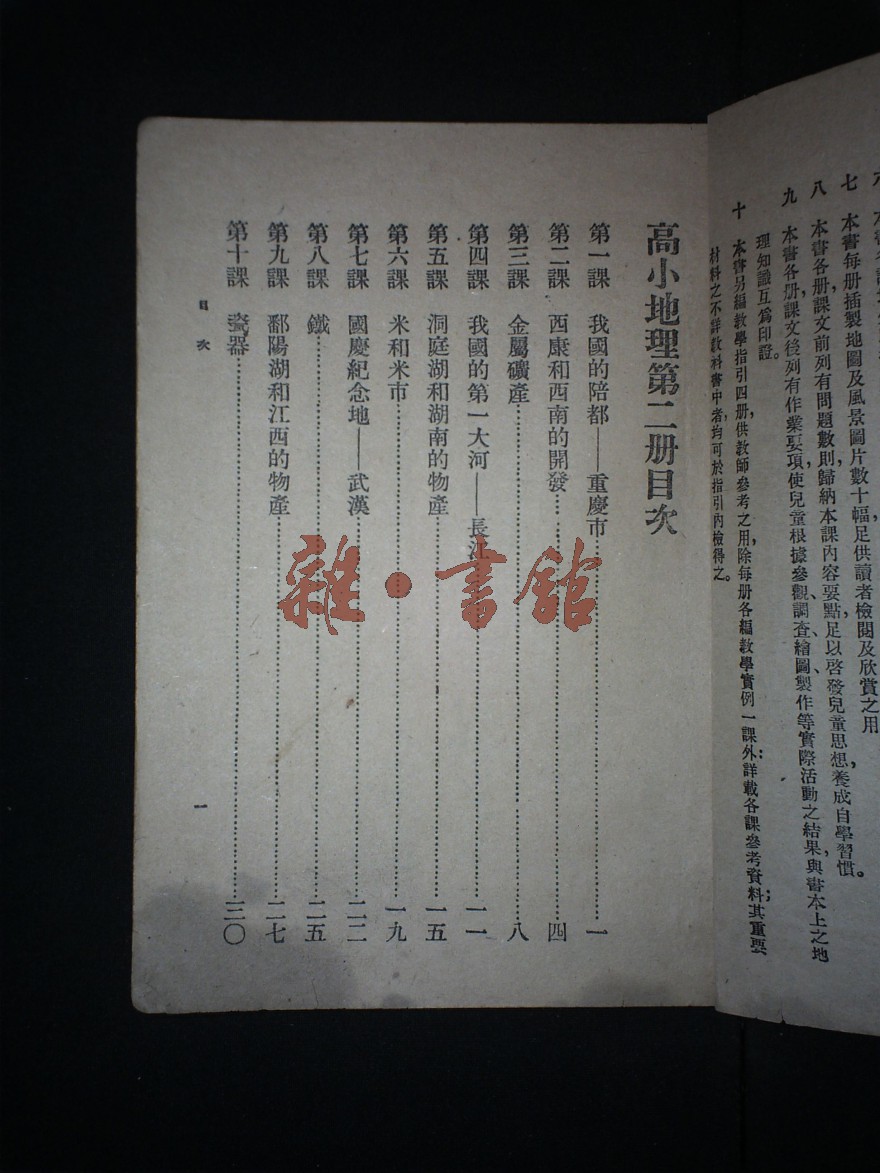 七 本書每册插製地圖及風景圖片數十幅，足供讀者檢閱及欣賞之用
八 本書各册課文前列有問題數則歸納本課內容要點，足以啓發兒童思想，養成自學習慣。
九 本書各册課文後列有作業要項，使兒童根據參觀、調查、繪圖、製作等實際活動之結果，與書本上之地
理知識互爲印證。
十 本書另編教學指引四册，供教師參考之用，除每册各編教學實例一課外，詳載各課參考資料；其重要
材料之不詳教科書中者，均可於指引內檢得之。
高小地理第二册目次
第一課 我國的陪都——重慶市……一
第二課 西康和西南的開發……四
第三課 金屬礦產……八
第四課 我國的第一大河——長江……一一
第五課 洞庭湖和湖南的物產……一五
第六課 米和米市……一九
第七課 國慶紀念地——武漢……二二
第八課 鐵……二五
第九課 鄱陽湖和江西的物產……二七
第十課 瓷器……三〇
目次
一
雜·書館